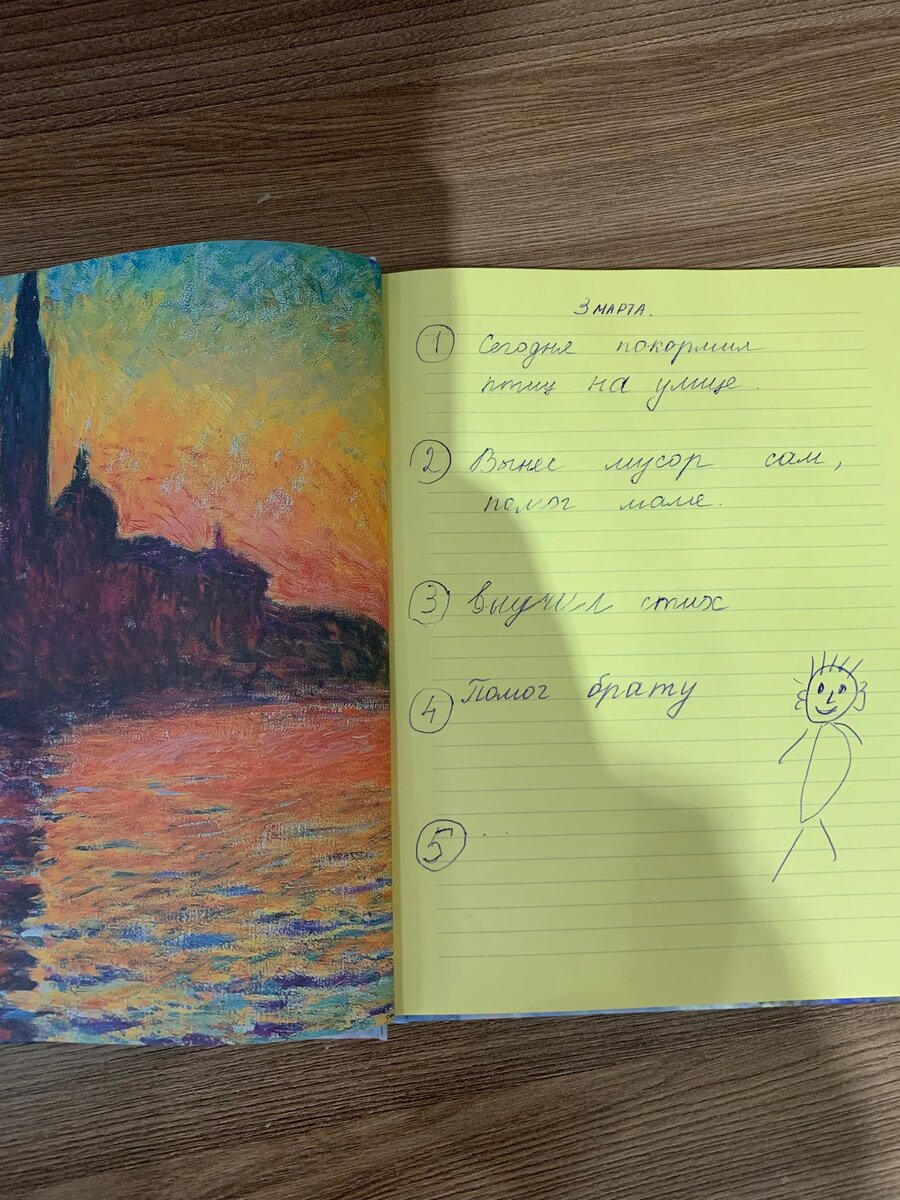 3 МАРТА.
1 Сегодня покормил
птиц на улице.
2 Вынес мусор сам,
помог маме.
3 Выучил стих
4 Помог брату
5